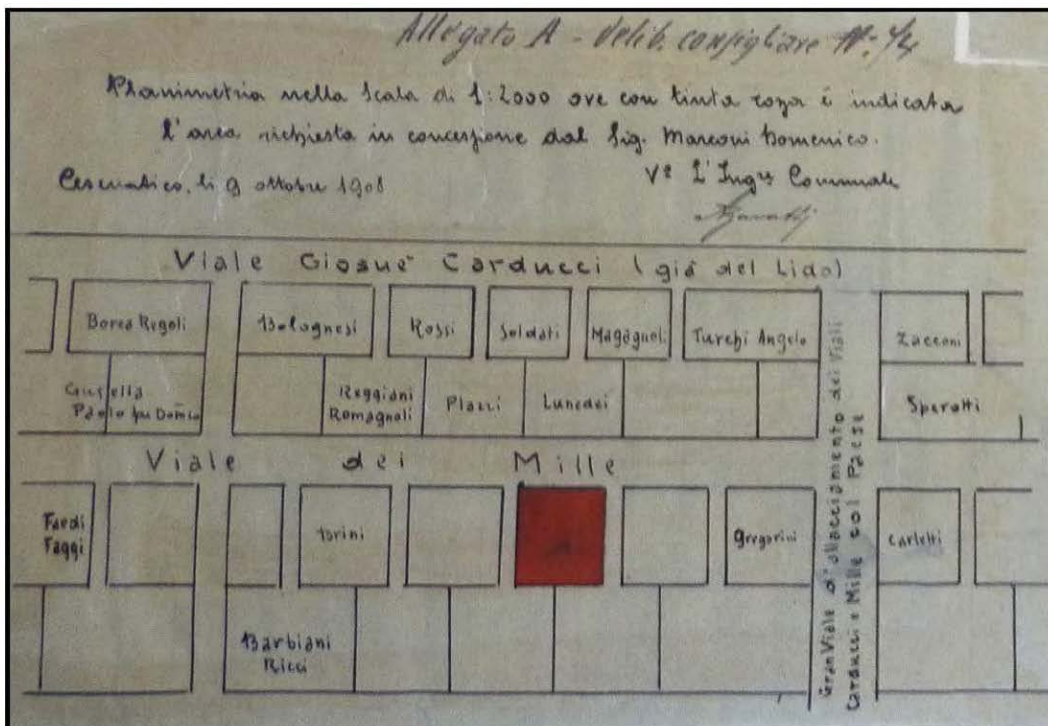 Allegato A - delib. consigliare N.º 4/4
Planimetria nella Scala di 1:2000 ove con tinta roza è indicata
l'area richiesta in concessione dal Sig. Marconi Domenico.
Cesenatico, li 9 ottobre 1908
Vº L'Ingre Comunale
Viale Giosuè Carducci (già del Lido)
Borea Regoli
Bolognesi
Rossi
Soldati
Magagnoli
Turchi Angelo
Zacconi
Gusella
Paolo fu Domco
Reggiani
Romagnoli
Plazzi
Lunedei
Sperotti
Viale dei Mille
Faedi
Faggi
Torini
Gregorini
Carletti
Barbiani
Ricci
Gran Viale d'allacciamento dei Viali
Carducci e Mille col Paese